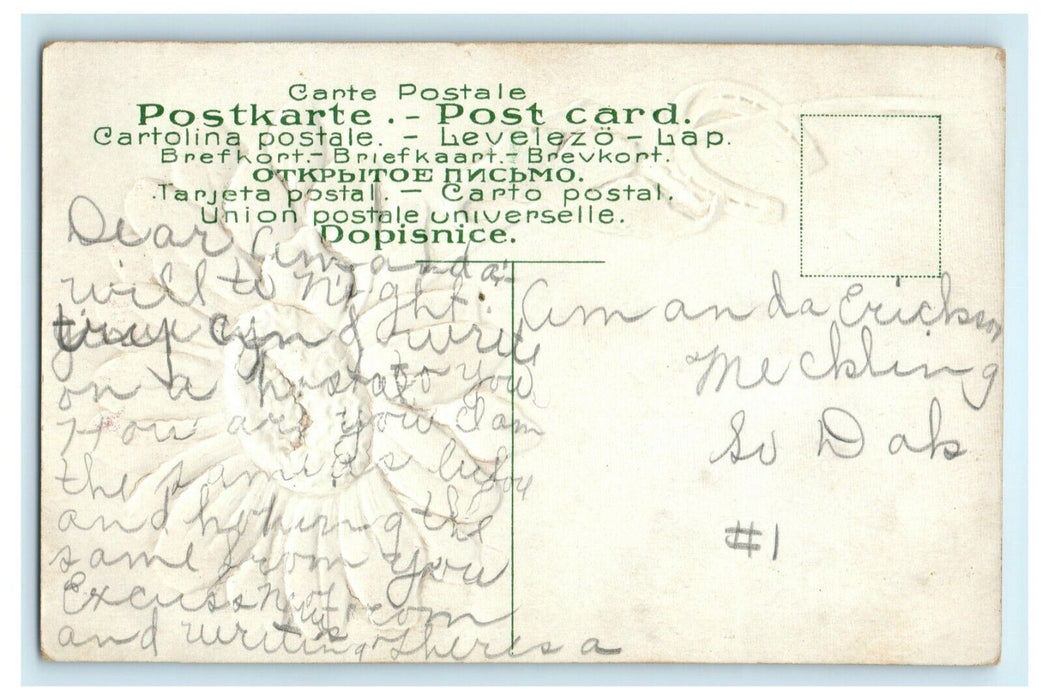 Carte Postale
Postkarte . - Post card.
Cartolina postale. - Levelezö - Lap.
Brefkort.- Briefkaart.- Brevkort.
ОТКРЫТОЕ ПИСЬМО.
Tarjeta postal. — Carto postal.
Union postale universelle.
Dopisnice.
Dear Amanda
will to Night
try an I write
on a to you
How are you I am
the same as befor
and hoping the
same from you
Excuss
and writing theresa
Amanda Erickson
Meckling
So Dak
#1